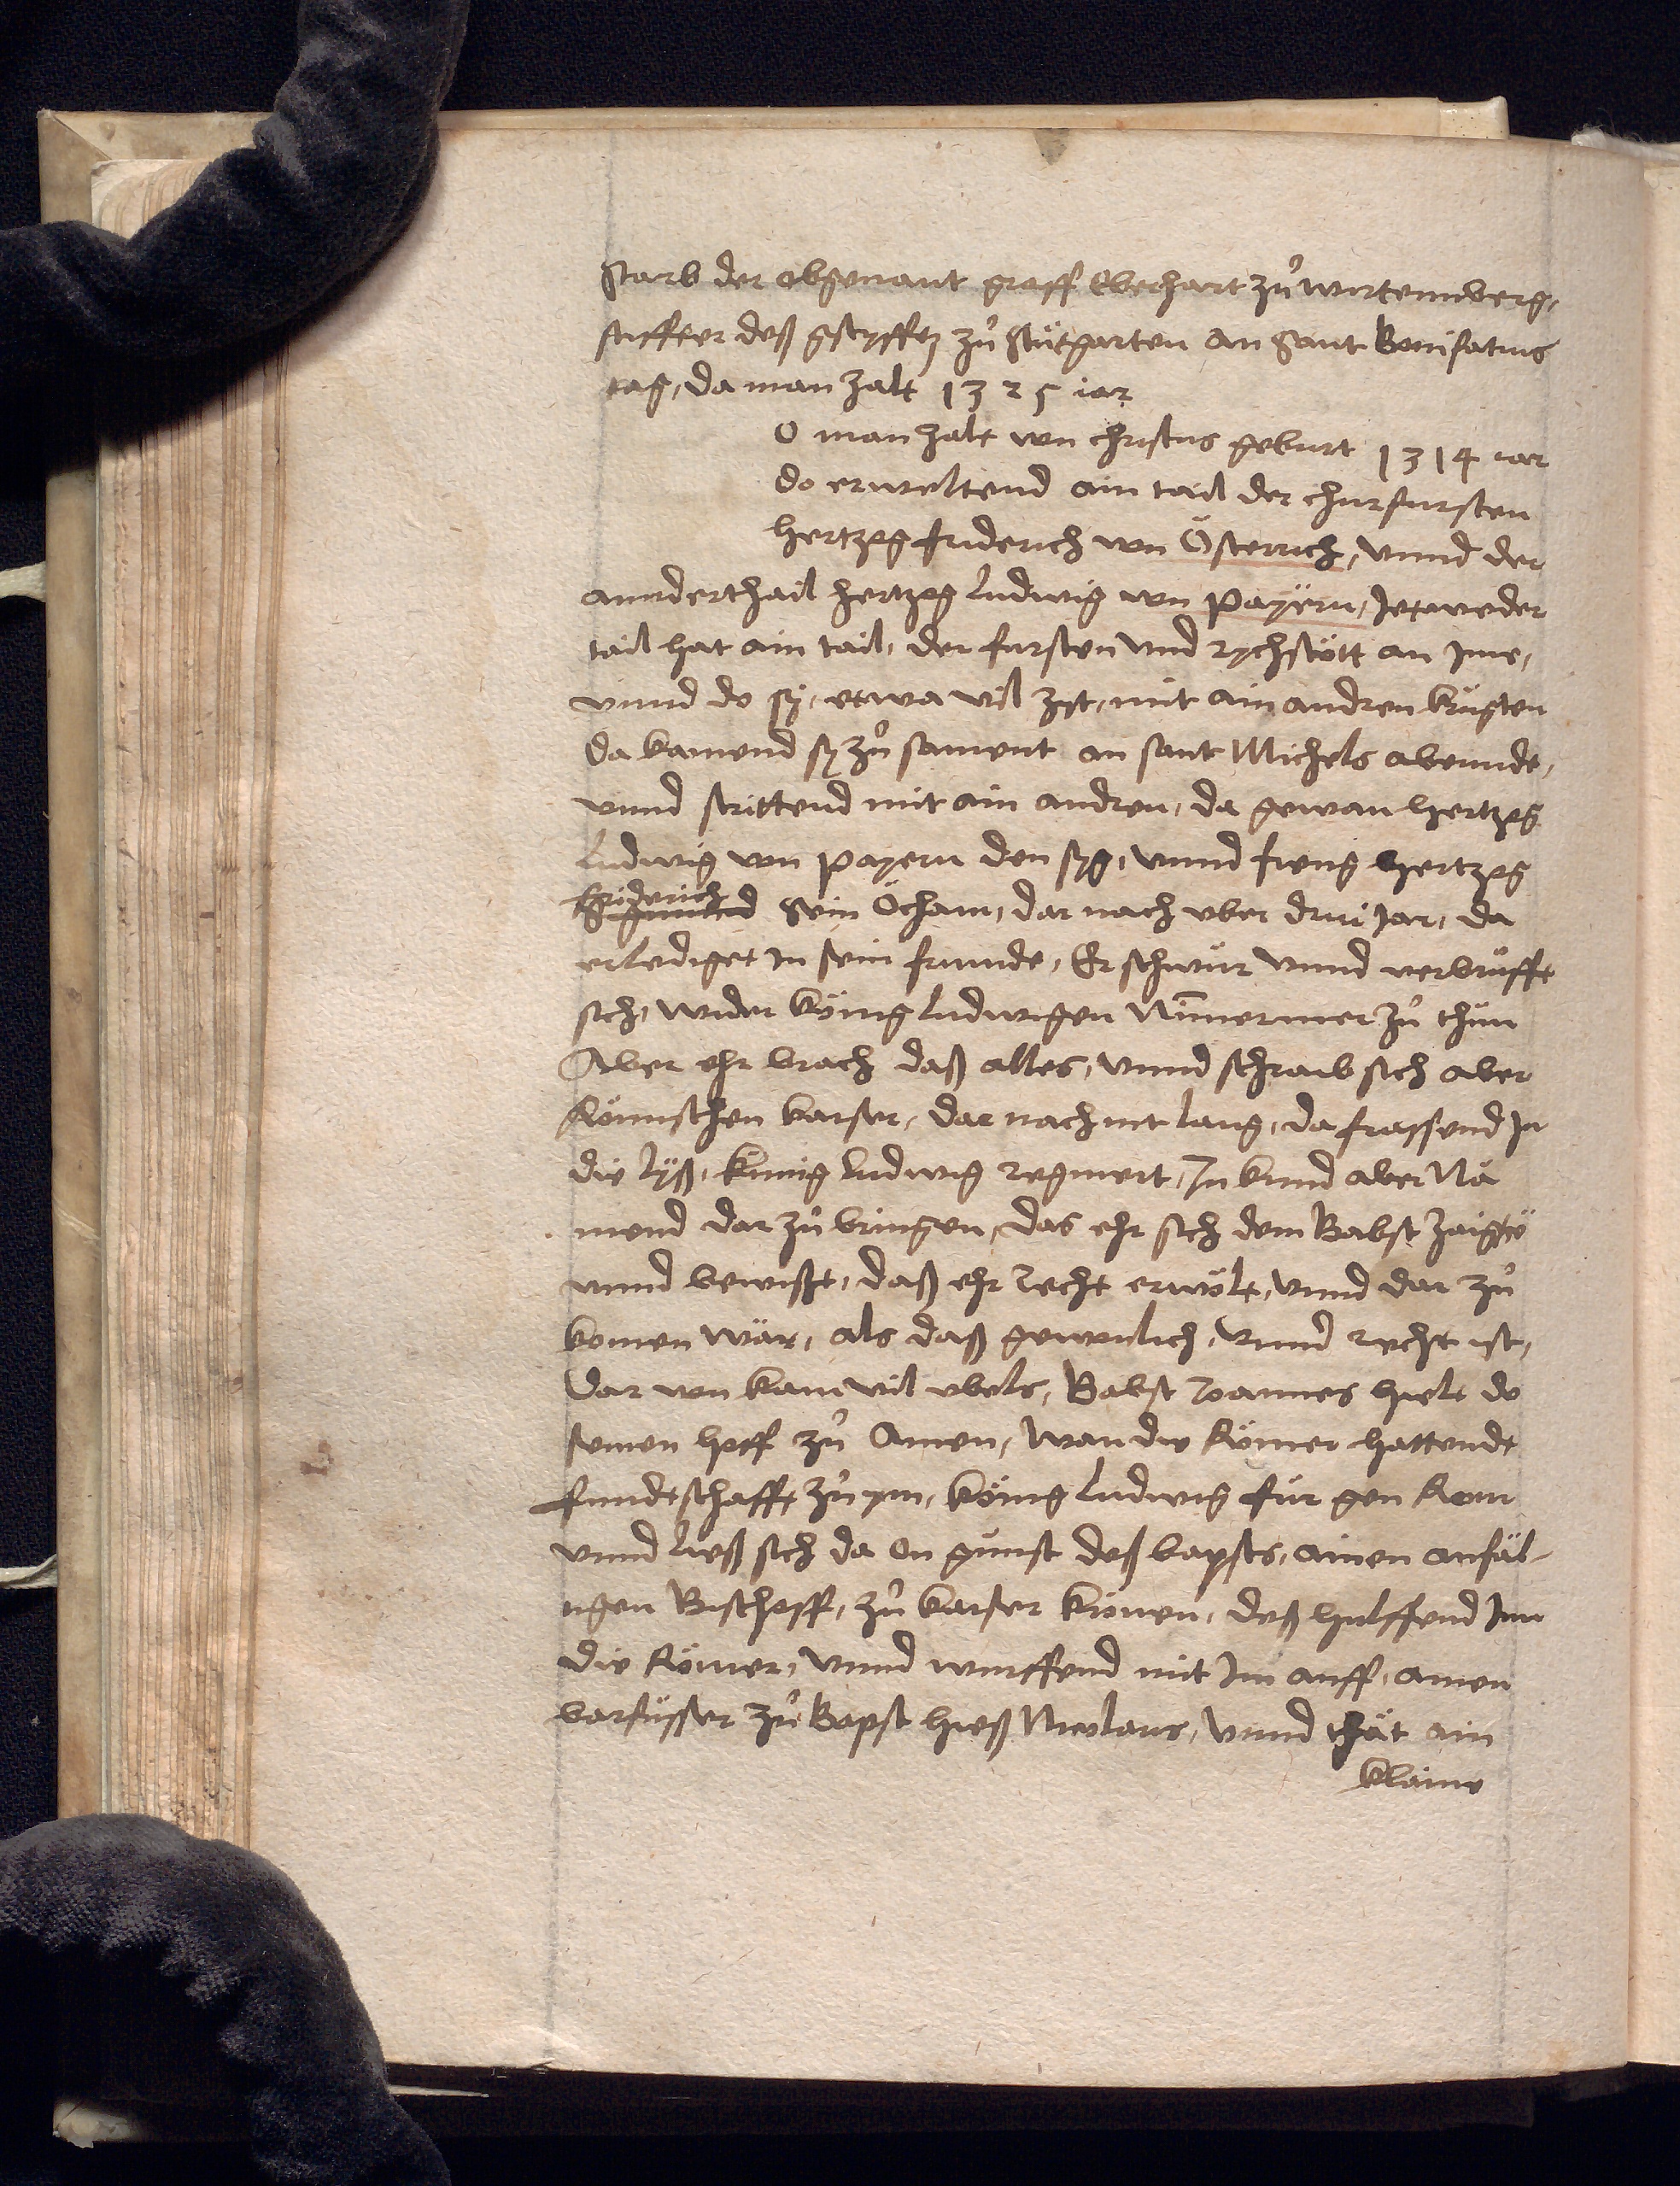 Starb der obgenant graff Eberhart zů wirtemberg,
stiffter deß gstyfftz zů Stůtgarten an Sant Bonifatius
tag, da man zalt 1325 iar
O man zalt von christus geburt 1314 iar
do erweltend ain tail der churfursten
hertzog friderich von Österrich, vnnd der
annderthail hertzog ludwig von Payern, Jetweder
tail hat ain tail, der fursten vnd rychstött an Jme,
vnnd do sy, etwa vil zyt, mit ain andren krügten
da kamend sy zů sament an sant Michels abennde,
vnnd strittend mit ain andren, da gewan hertzog
Ludwig von Payern den syg, vnnd fieng hertzog
friderich sein Öcham, dar nach vber drui Jar, da
erlediget in sein frunde, Er schwůr vnnd verbrüfft
sich, wider König Ludwigen Nimermer zů thůn
Aber ehr brach daß alles, vnnd schraib sich aber
Römischen kayser, dar nach nit lang, da frassend Jn
die lyß, König ludwig regniert, Jn kund aber Nä
mend dar zů bringen, das ehr sich dem Babst zaigte
vnnd bewißt, daß ehr recht erwölt, vnnd dar zů
komen wär, als daß gewonlich, vnnd recht ist,
Dar von kam vil vbels, Babst Joannes hielt do
seinen hoff zů Auion, wan die Römer hattendt
findtschafft zů ym, König Ludwig für gen Rom
vnnd ließ sich da on gunst deß bapsts, ainen anfäl-
tigen Bischoff, zů kayser krönen, deß hulffend Jm
die Römer, vnnd wurffend mit Jm auff, ainen
barfüsser zů Bapst hieß Nicolaus, vnnd thät ain
klaine